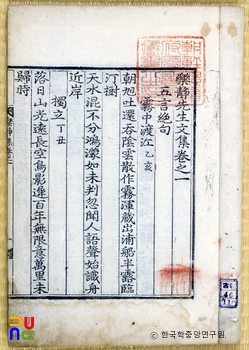 樂静先生文集卷之一
五言絶句
霧中渡江 乙亥
朝旭吐還吞陰雲散作霧渾藏出浦船半露臨
汀樹
天水混不分鴻濛如未判忽聞人語聲始識舟
近岸
獨立 丁丑
落日山光遠長空鳥影遲百年無限意萬里未
歸時
© 한국학중앙연구원